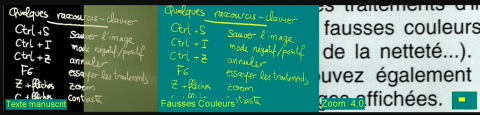 Quelques raccourcis-clavier
Ctrl+S Sauver l'image
Ctrl+I mode négatif/positif
Ctrl+Z annuler
F6 essayer les traitements
Z + flèches zoom
C + flèches contraste
Texte manuscrit
Quelques raccourcis-clavier
Ctrl+S Sauver l'image
Ctrl+I mode négatif/positif
Ctrl+Z annuler
F6 essayer les traitements
Z + flèches zoom
C + flèches contraste
Fausses Couleurs
traitements d'i
fausses couleurs
de la netteté...).
uvez également
affichées.
Zoom 4,0